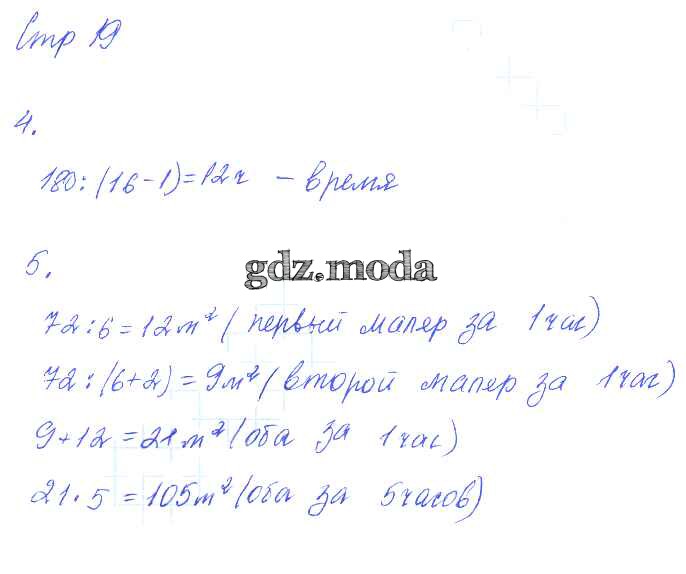 Стр 19
4.
180:(16-1)=12ч - время
5.
gdz.moda
72:6=12м² (первый маляр за 1час)
72:(6+2)=9м² (второй маляр за 1час)
9+12=21м² (оба за 1час)
21·5=105м² (оба за 5часов)